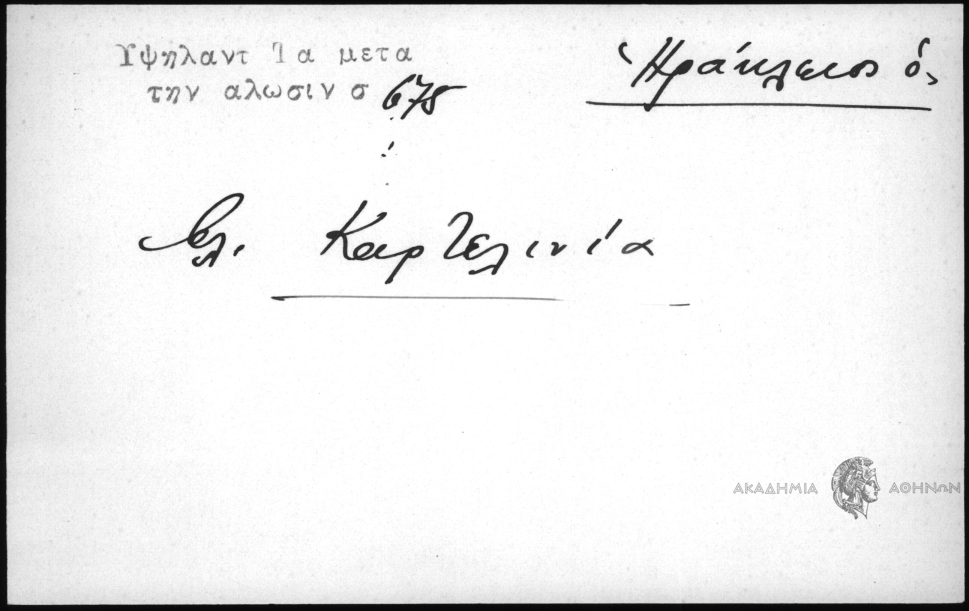 Υψηλαντ Τα μετα
την αλωσιν σ 678
Ἡράκλειος ὁ,
βλ. Καρτελινία
ΑΚΑΔΗΜΙΑ ΑΘΗΝΩΝ